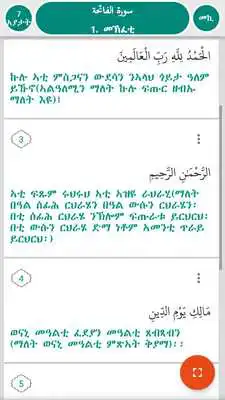 7
ኣያታት
سورة الفاتحة
1. መኽፈቲ
መኪ
الْحَمْدُ لِلَّهِ رَبِّ الْعَالَمِينَ
ኩሉ ኣቲ ምስጋናን ውደሳን ንኣላህ ጎይታ ዓለም
ይኹኖ(ኣልዓለሚን ማለት ኩሉ ፍጡር ዘብኡ
ማለት እዩ)፤
3
الرَّحْمَٰنِ الرَّحِيمِ
ኣቲ ፍጹም ሩህሩህ ኣቲ ኣዝዩ ራህራሂ(ማለት
በዓል ሰፊሕ ርህራሄን በዓል ውሱን ርህራሄን፡
በቲ ሰፊሕ ርህራሄ ንኽሎም ፍጡራቱ ይርህርህ፡
በቲ ውሱን ርህራሄ ድማ ነቶም ኣመንቲ ጥራይ
ይርህርህ፡)
4
مَالِكِ يَوْمِ الدِّينِ
ወናኒ መዓልቲ ፈደያን መዓልቲ ጸብጸብን
(ማለት ወናኒ መዓልቲ ምጽኣት ቅያማ)፡፡
5